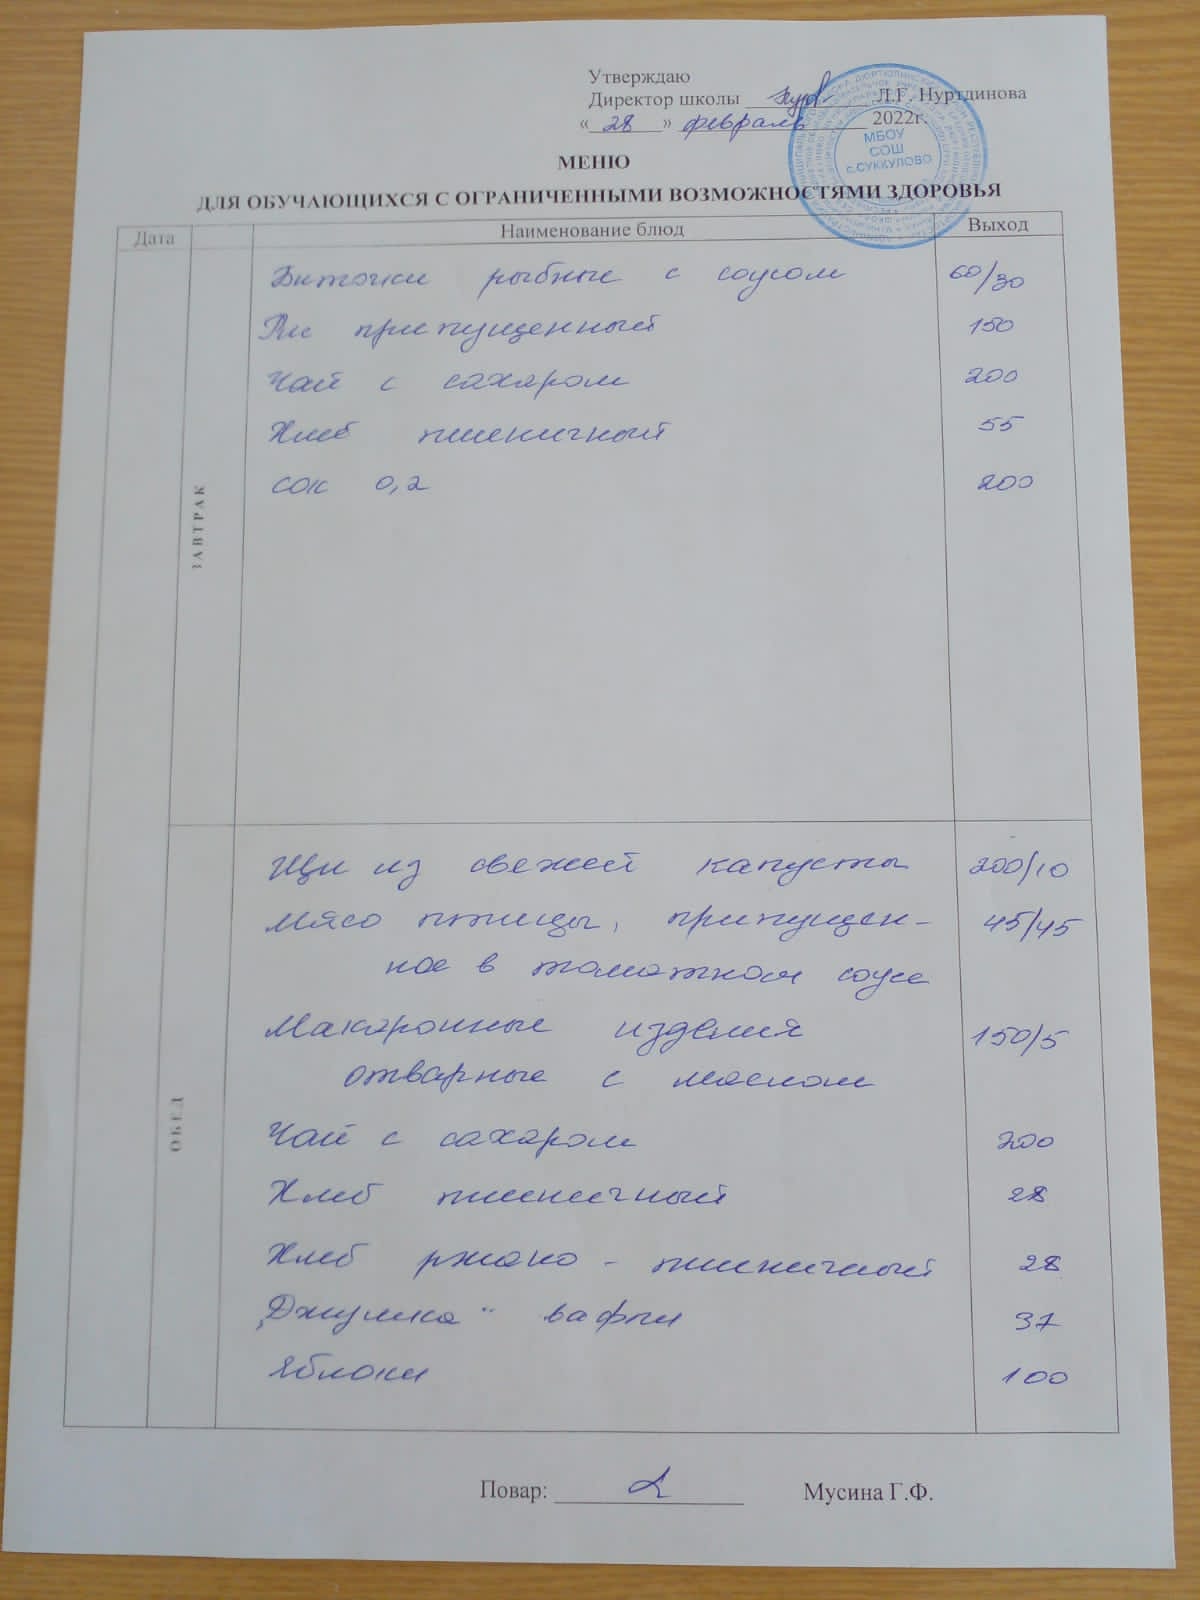 Утверждаю
Директор школы Л.Г. Нуртдинова
« 28 » февраль 2022г.
МБОУ
СОШ
с.СУККУЛОВО
МЕНЮ
ДЛЯ ОБУЧАЮЩИХСЯ С ОГРАНИЧЕННЫМИ ВОЗМОЖНОСТЯМИ ЗДОРОВЬЯ
Дата Наименование блюд Выход
ЗАВТРАК
Биточки рыбные с соусом 60/30
Рис припущенный 150
Чай с сахаром 200
Хлеб пшеничный 55
сок 0,2 200
ОБЕД
Щи из свежей капусты 200/10
Мясо птицы, припущен- 45/45
ное в томатном соусе
Макаронные изделия 150/5
отварные с маслом
Чай с сахаром 200
Хлеб пшеничный 28
Хлеб ржано-пшеничный 28
„Джумка“ вафли 37
Яблоки 100
Повар: Мусина Г.Ф.